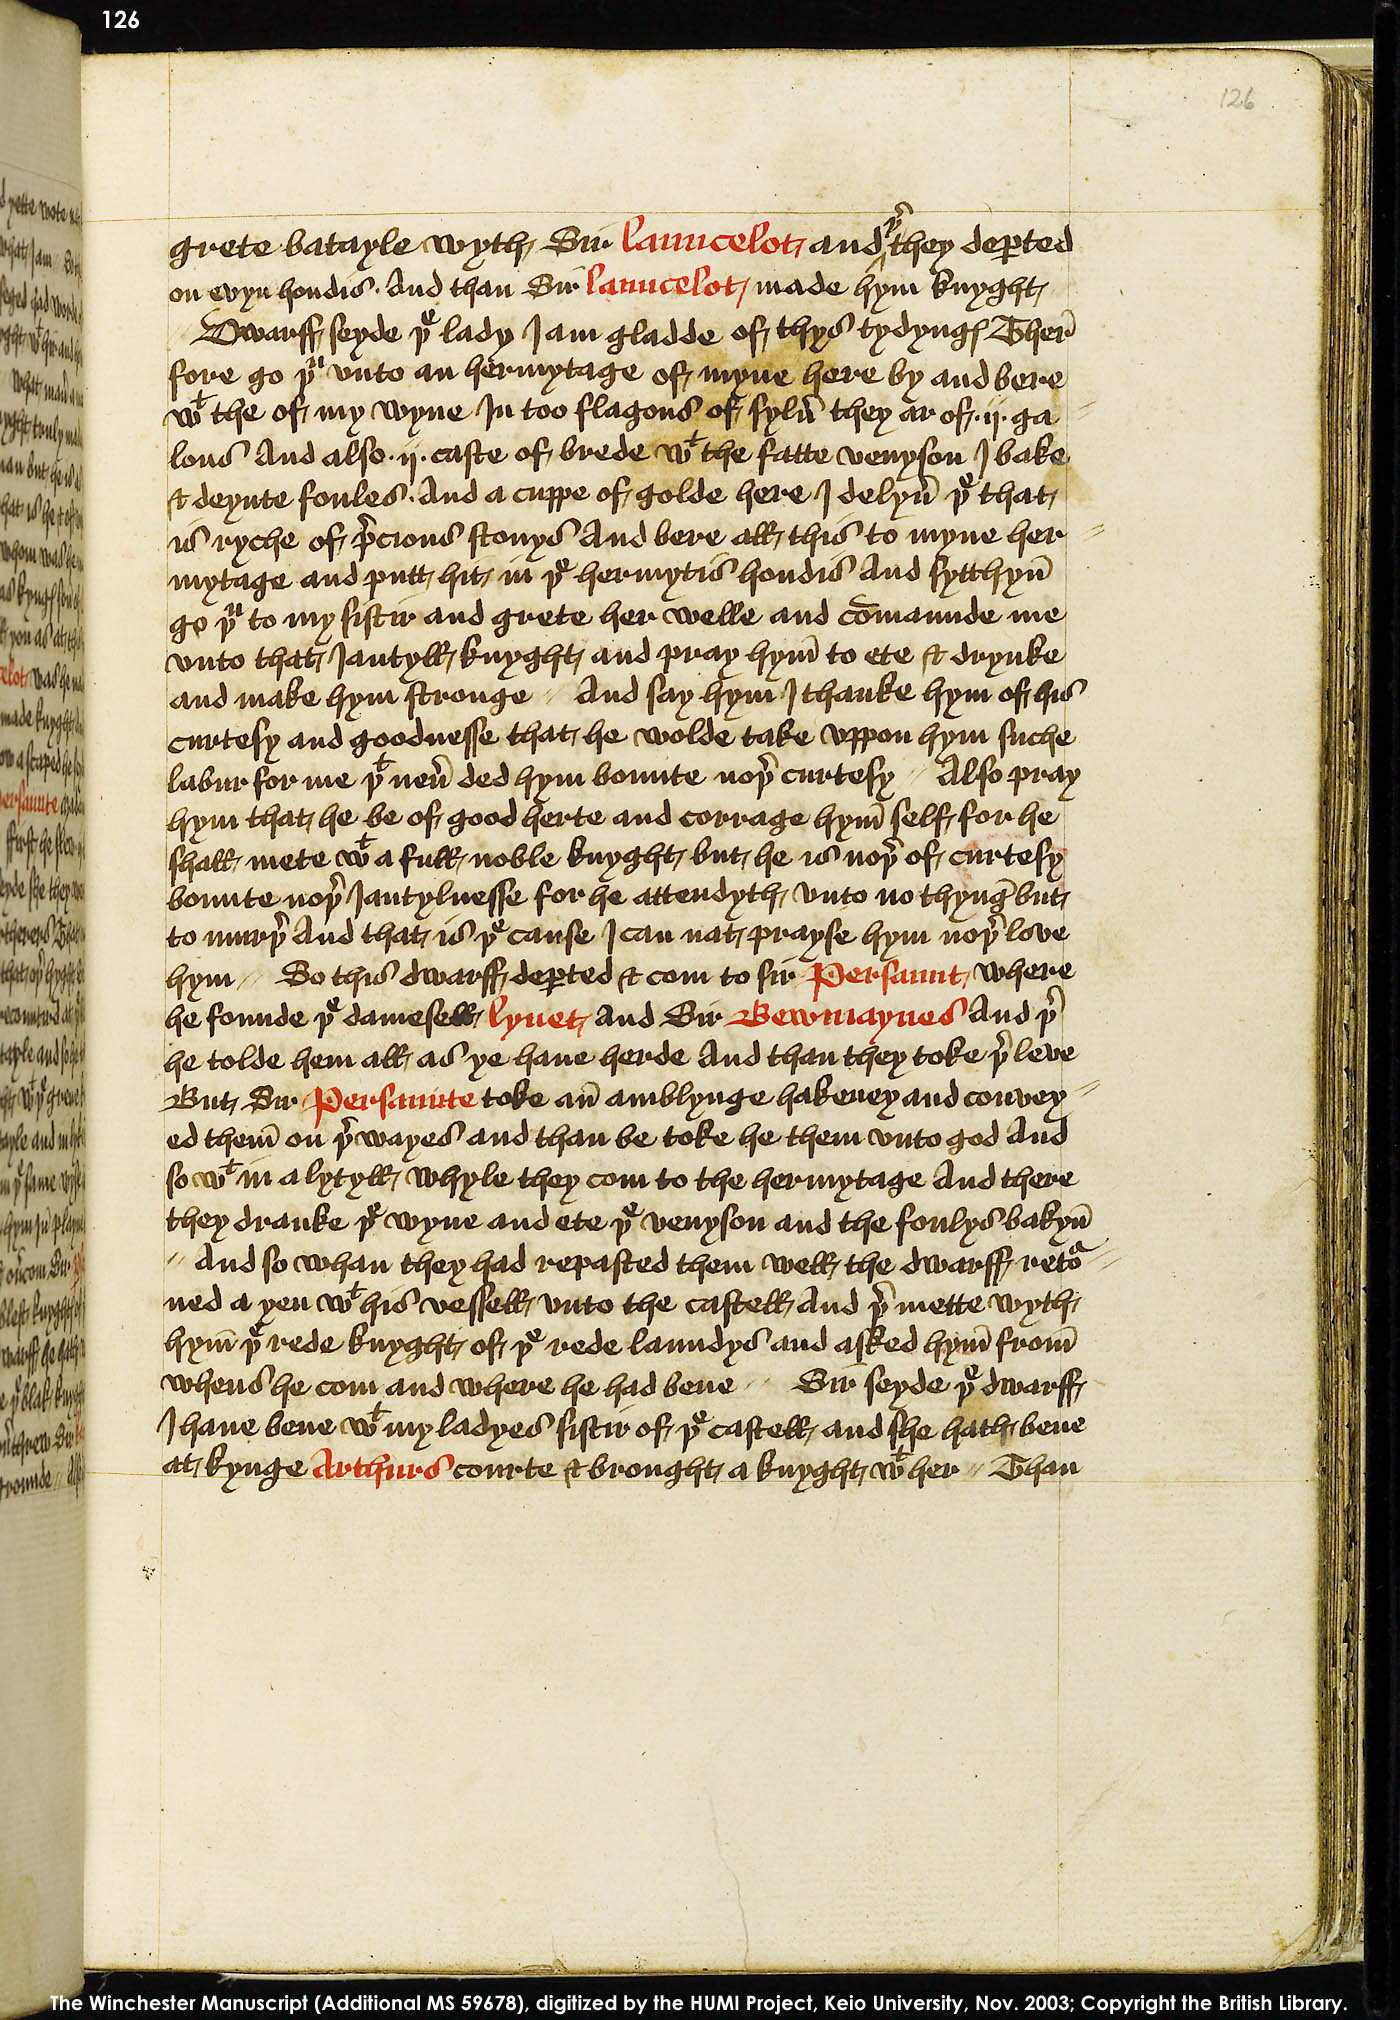 126
126
grete batayle wyth Sir Launcelot and þer they dep̱ted
on evyn hondis. And than Sir Launcelot made hym knyght
Dwarff seyde þe lady I am gladde of thys tydyngꝭ Ther̄
fore go þu vnto an hermytage of myne here by and bere
wt the of my wyne In too flagons of sylu̾ they ar of .ij. ga
lons And also .ij. caste of brede wt the fatte venyson I bake
& deynte foules. And a cuppe of golde here I delyu̾ þe that
is ryche of p̾cious stonys And bere all this to myne her
mytage and putt hit in þe hermytis hondis And sytthyn̄
go þu to my sistir and grete her welle and com̄aunde me
vnto that Jantyll knyght and pray hym̄ to ete & drynke
and make hym stronge // And say hym I thanke hym of his
curtesy and goodnesse that he wolde take vppon hym suche
labur for me þt neu̾ ded hym bounte noþ̾ curtesy // Also pray
hym that he be of good herte and corrage hym̄ self for he
shall mete wt a full noble knyght but he is noþ̾ of curtesy
bounte noþ̾ Jantylnesse for he attendyth vnto no thynḡ but
to murþ̾ And that is þe cause I can nat prayse hym noþ̾ love
hym // So this dwarff dep̱ted & com to sir Persaunt where
he founde þe damesell lynet And Sir Bewmaynes And þ̾
he tolde hem all as ye haue herde And than they toke þ̾ leve
But Sir Persaunte toke an̄ amblynge hakeney and convey //
ed them̄ on þ̾ wayes and than be toke he them vnto god And
so wt in a lytyll whyle they com to the hermytage And there
they dranke þe wyne and ete þe venyson and the foulys bakyn̄
// And so whan they had repasted them well the dwarff retoᵃ //
ned a yen wt his vessell vnto the castell And þ̾ mette wyth
hym̄ þe rede knyght of þe rede laundys and asked hym̄ from̄
whens he com and where he had bene // Sir seyde þe dwarff
I haue bene wt my ladyes sistir of þe castell and she hath bene
at kynge Arthurs courte & brought a knyght wt her // Than
The Winchester Manuscript (Additional MS 59678), digitized by the HUMI Project, Keio University, Nov. 2003; Copyright the British Library.